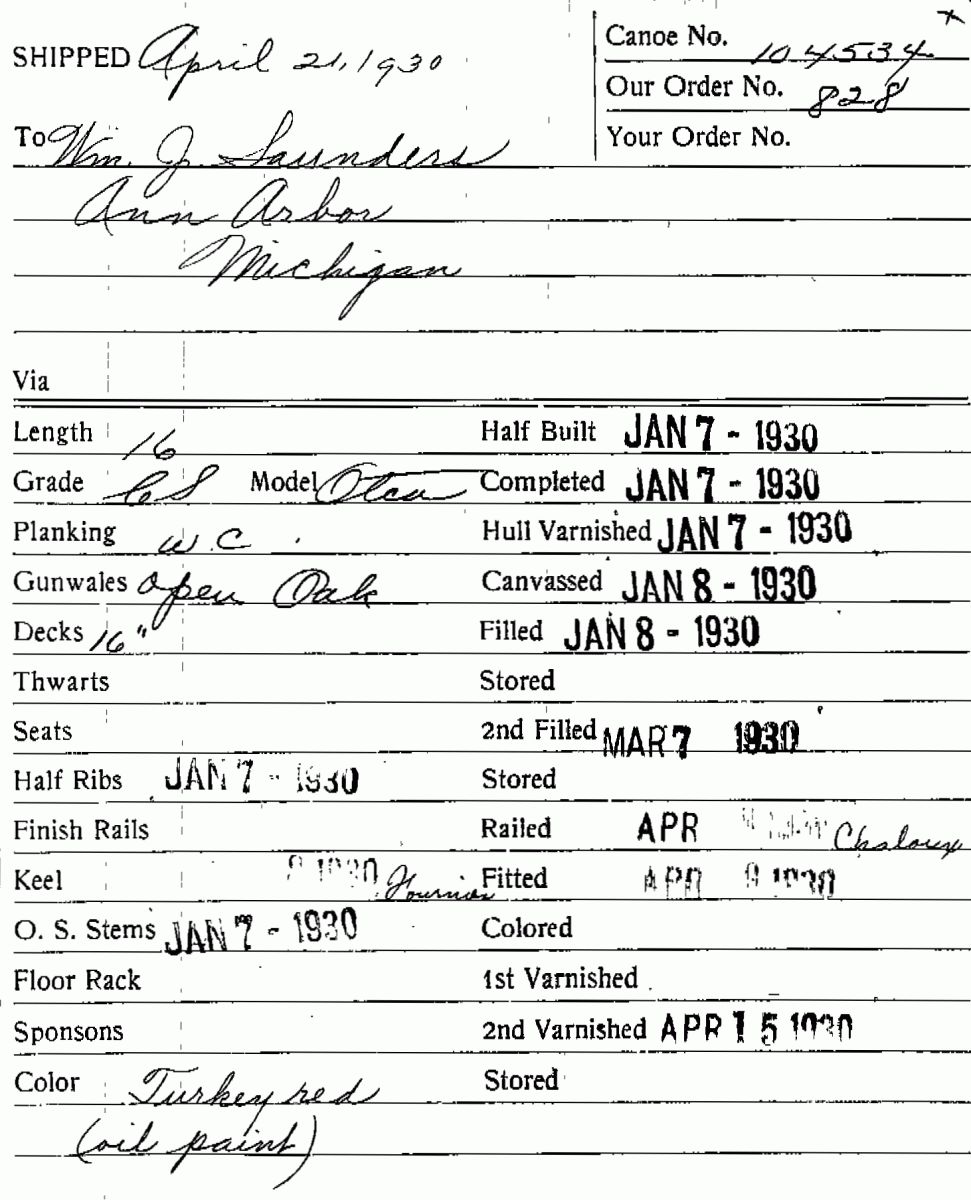 SHIPPED April 21, 1930
Canoe No. 104534
Our Order No. 828
Your Order No.
To Wm. J. Saunders
Ann Arbor
Michigan
Via
Length 16 Half Built JAN 7 - 1930
Grade CS Model Otca Completed JAN 7 - 1930
Planking W.C. Hull Varnished JAN 7 - 1930
Gunwales open Oak Canvassed JAN 8 - 1930
Decks 16" Filled JAN 8 - 1930
Thwarts Stored
Seats 2nd Filled MAR 7 1930
Half Ribs JAN 7 - 1930 Stored
Finish Rails Railed APR Chaloux
Keel 1930 Fournier Fitted APR 9 1930
O. S. Stems JAN 7 - 1930 Colored
Floor Rack 1st Varnished
Sponsons 2nd Varnished APR 15 1930
Color Turkey red Stored
(oil paint)